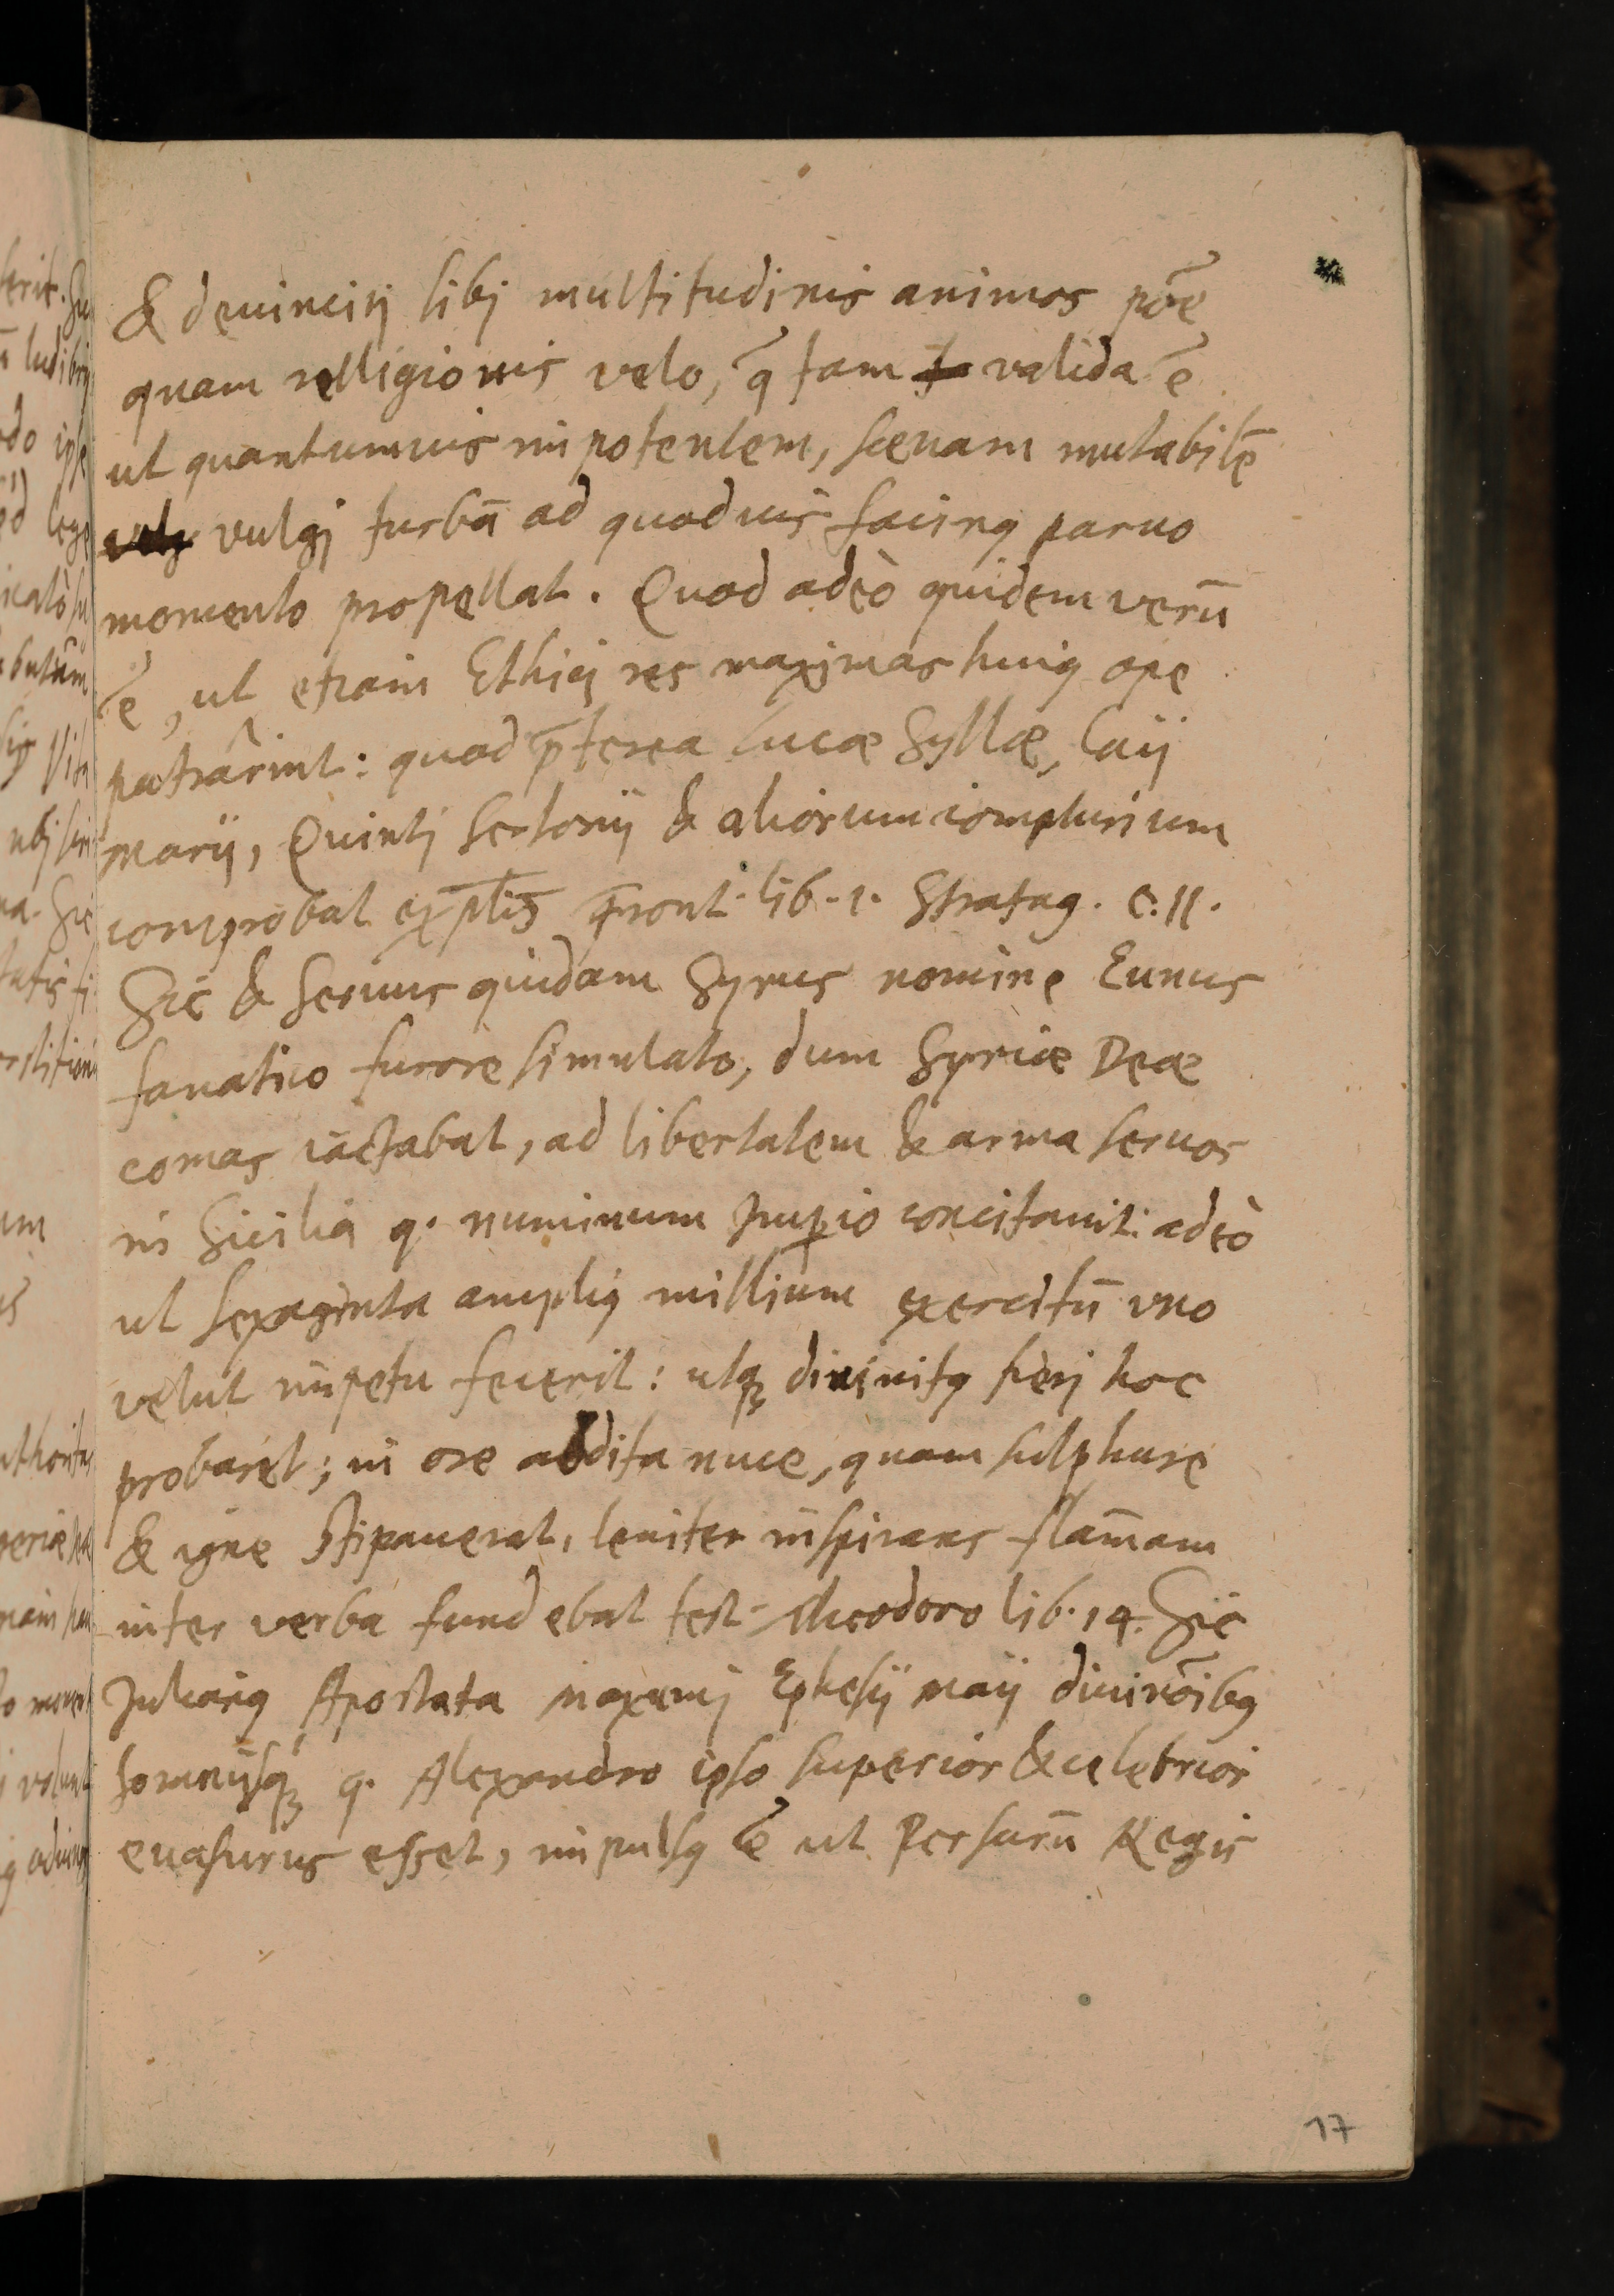 & deuincirj sibj multitudinis animos põe
quam relligionis velo, q̃ tam valida ẽ
ut quantumuis impotentem, sæuam mutabilẽ
vulgj turbã ad quoduis facinq paruo
momento propellat. Quod adeò quidem verũ
ẽ, ut etiam Ethicj res maximas huiq ope
patrârint: quod p̃terea Lucæ Syllæ, Caij
Marij, Quintj Sertorij & aliorum complurium
comprobat exp̃lis Front. lib. 1. Stratag. c. 11.
Sic & seruus quidam Syrus nomine Eunus
fanatico furore simulato, dum Syriæ Deæ
comas iactabat, ad libertatem & arma seruos
in Sicilia q. numinum Imperio concitauit: adeò
ut sexaginta ampliq millium exercitũ vno
velut impetu fecerit: utq₃ diuinitq fierj hoc
probaret; in ore abdita nuce, quam sulphure
& igne stipauerat, leniter inspirans flam̃am
inter verba fundebat test. Theodoro lib. 14. Sic
Julianq Apostata Maximj Ephesij maij diuinõibq
somnijsq₃ q. Alexandro ipso superior & celebrior
euasurus esset, impulsq ẽ ut Persarũ Regis
17